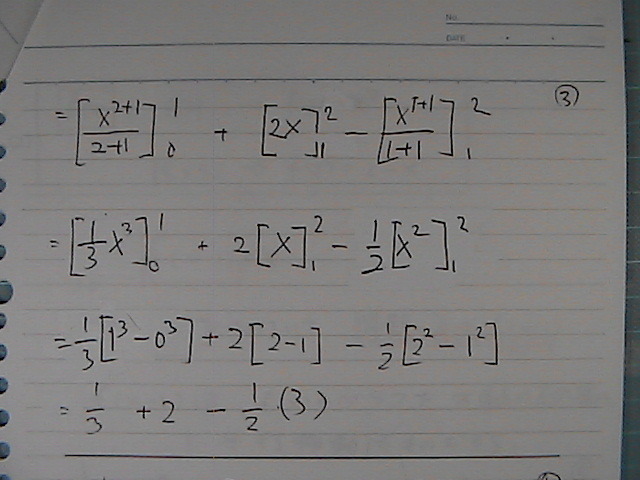 No.
DATE
③
= [x^{2+1}/2+1]_0^1 + [2x]_1^2 - [x^{1+1}/1+1]_1^2
= [1/3 x^3]_0^1 + 2[x]_1^2 - 1/2[x^2]_1^2
= 1/3[1^3 - 0^3] + 2[2-1] - 1/2[2^2 - 1^2]
= 1/3 + 2 - 1/2 · (3)